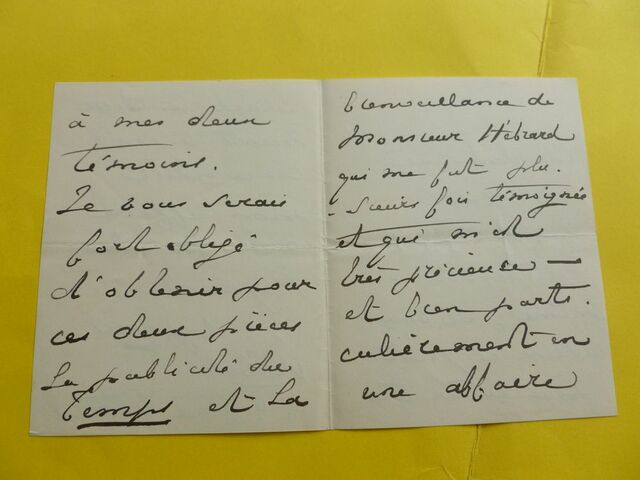 à mes deux
témoins.
Je vous serais
fort obligé
d'obtenir pour
ces deux pièces
La publicité du
Temps et La
bienveillance de
Monsieur Hébrard
qui me fut plu-
-sieurs fois témoignée
et qui m'est
très précieuse —
et bien parti-
culièrement en
une affaire